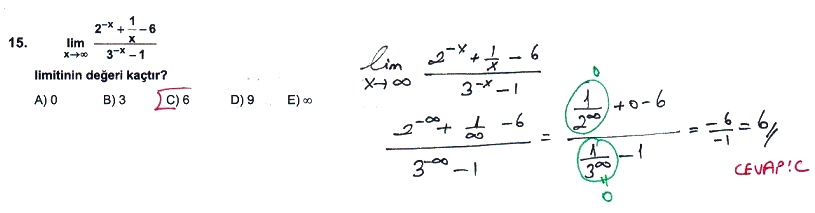 15. lim x→∞ (2^-x + 1/x - 6)/(3^-x - 1)
limitinin değeri kaçtır?
A) 0 B) 3 C) 6 D) 9 E) ∞
lim x→∞ (2^-x + 1/x - 6)/(3^-x - 1)
(2^-∞ + 1/∞ - 6)/(3^-∞ - 1) = (1/2^∞ + 0 - 6)/(1/3^∞ - 1) = -6/-1 = 6//
0
0
CEVAP: C